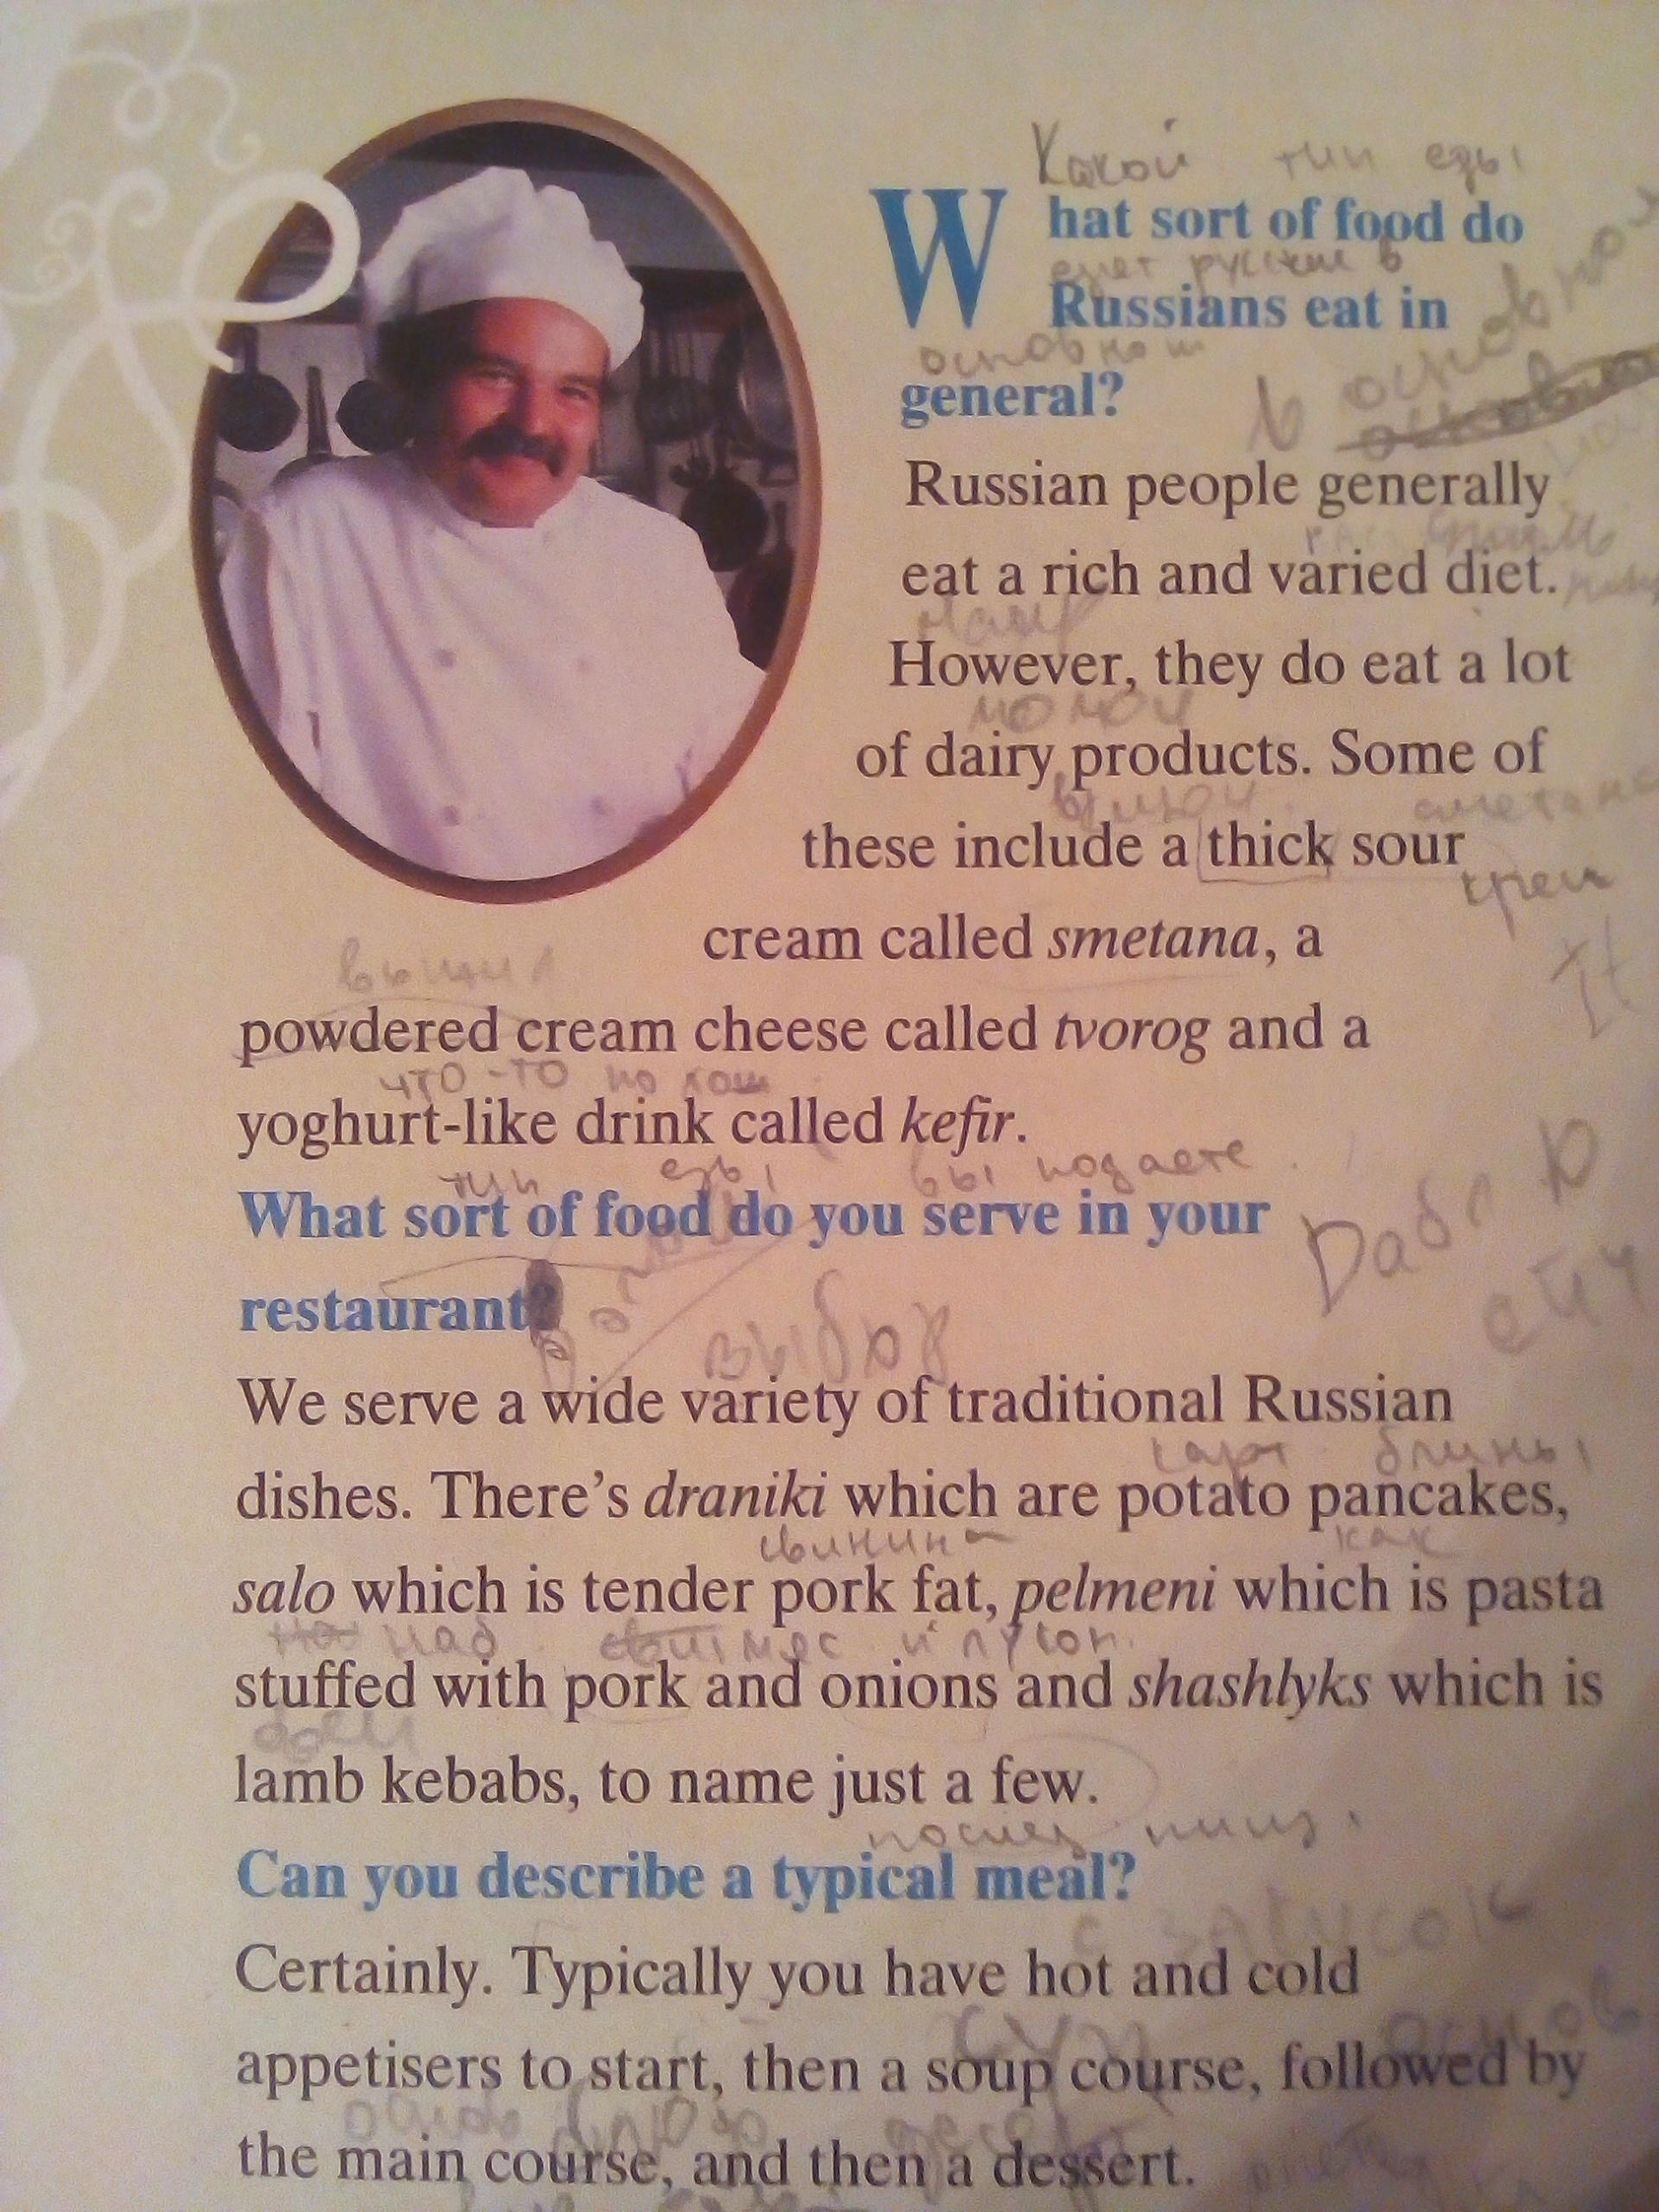 Какой тип еды
What sort of food do
русские в
Russians eat in
основном
general?
в основном
Russian people generally
eat a rich and varied diet.
However, they do eat a lot
of dairy products. Some of
сметана
these include a thick sour
крем
cream called smetana, a
It
powdered cream cheese called tvorog and a
что-то по хош
yoghurt-like drink called kefir.
тип еды вы подаете
What sort of food do you serve in your
Dабл Ю
restaurant?
ейч
выбор
We serve a wide variety of traditional Russian
карт блины
dishes. There's draniki which are potato pancakes,
свинина как
salo which is tender pork fat, pelmeni which is pasta
над и
stuffed with pork and onions and shashlyks which is
lamb kebabs, to name just a few.
Can you describe a typical meal?
с закусок
Certainly. Typically you have hot and cold
суп основ
appetisers to start, then a soup course, followed by
the main course, and then a dessert.